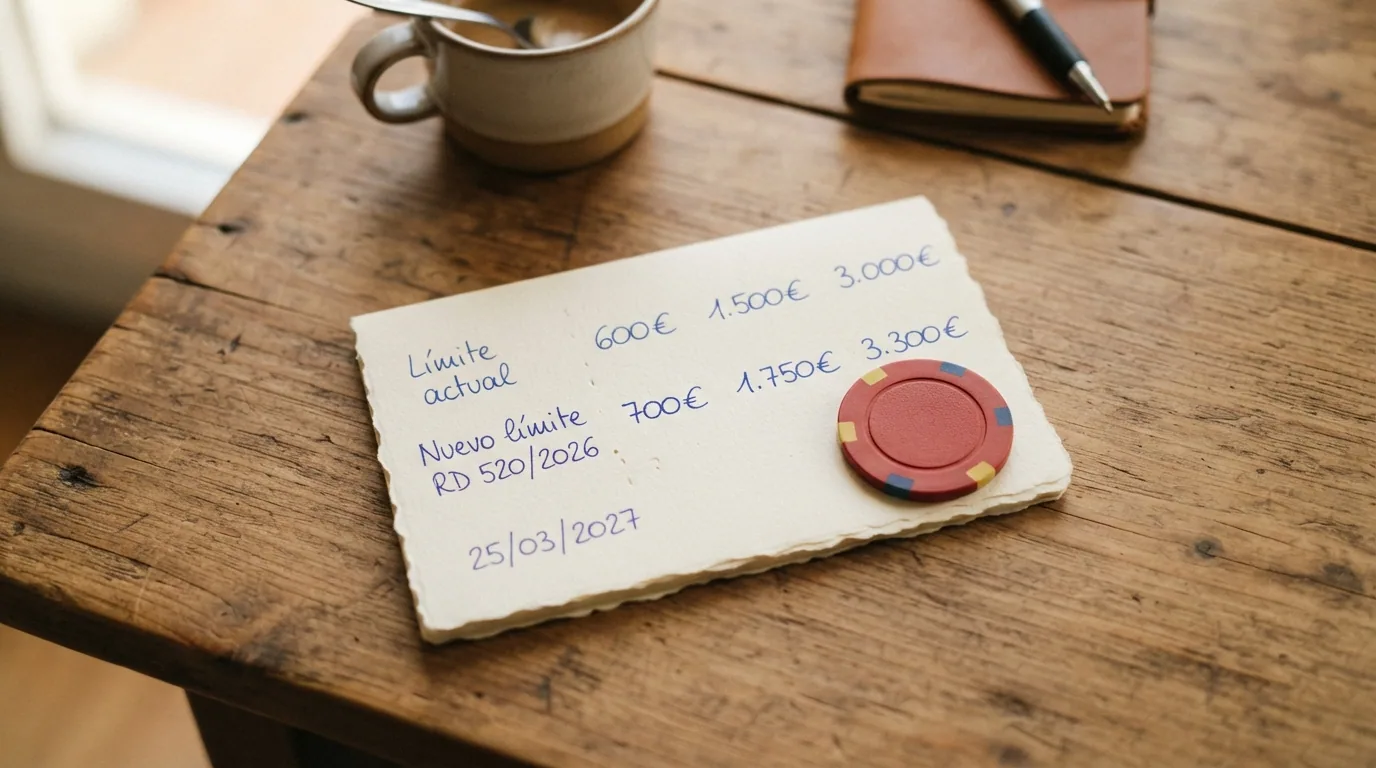 Límite
actual 600€ 1.500€ 3.000€
Nuevo límite
RD 520/2026 700€ 1.750€ 3.300€
25/03/2027